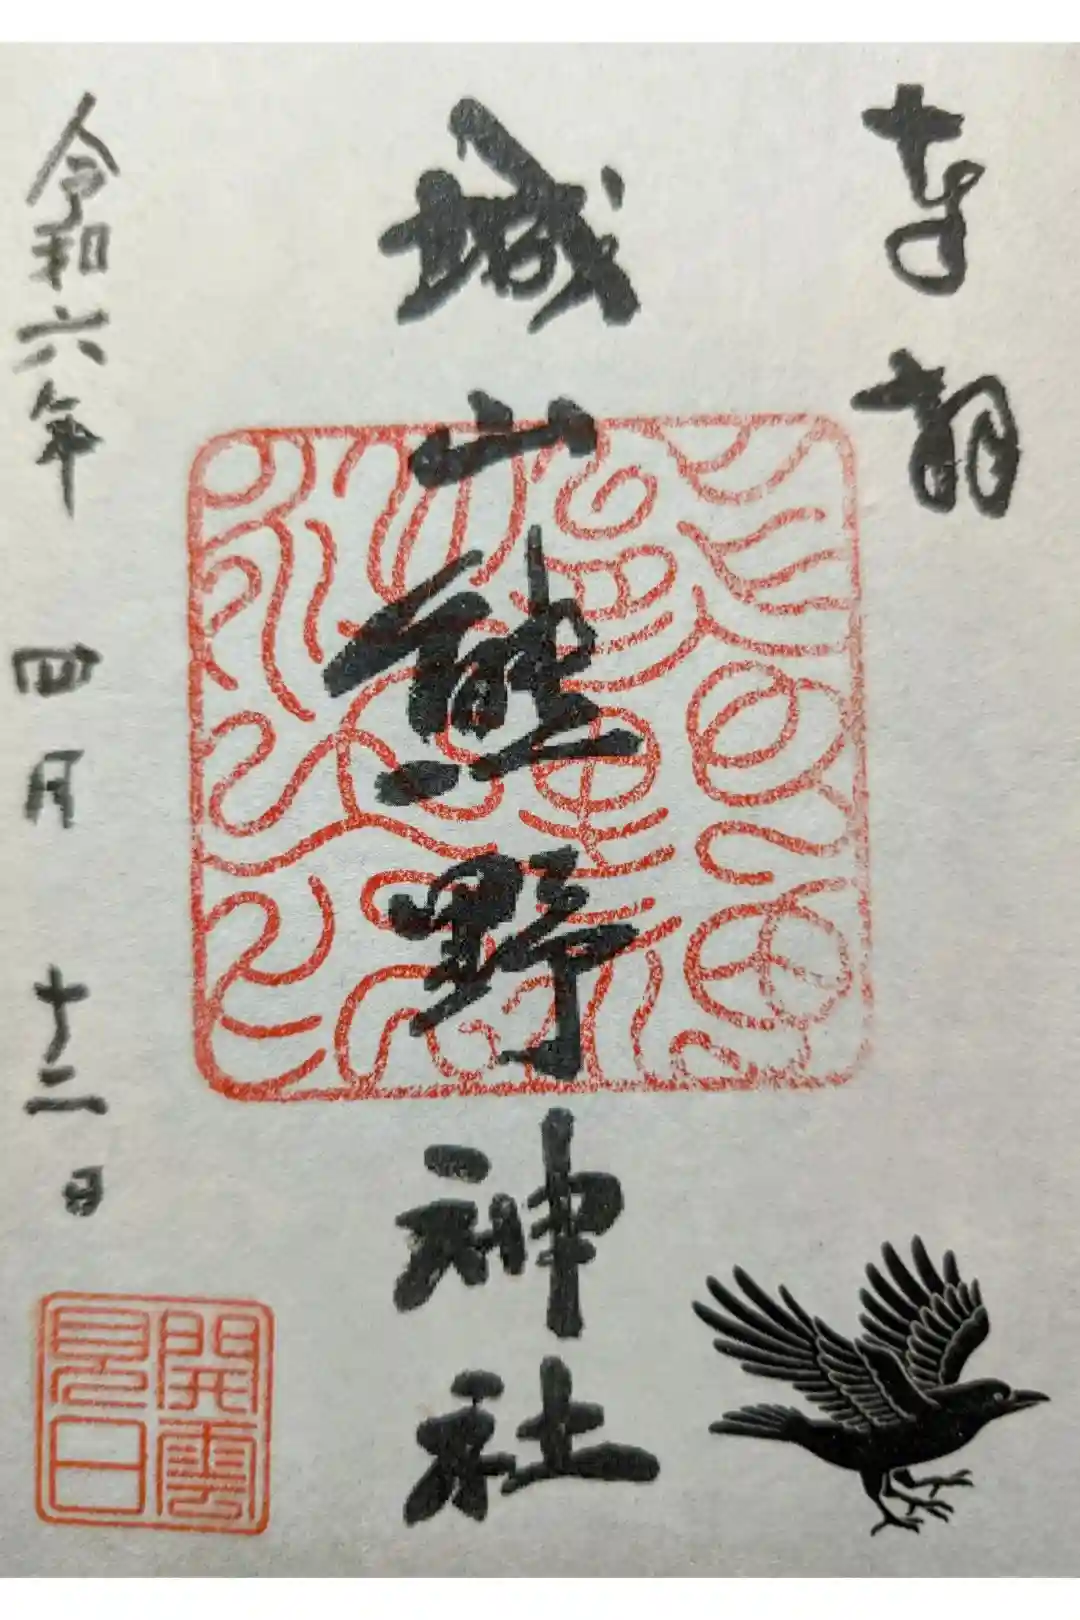 奉拝
城山熊野神社
令和六年 四月 十二日
開雲見日